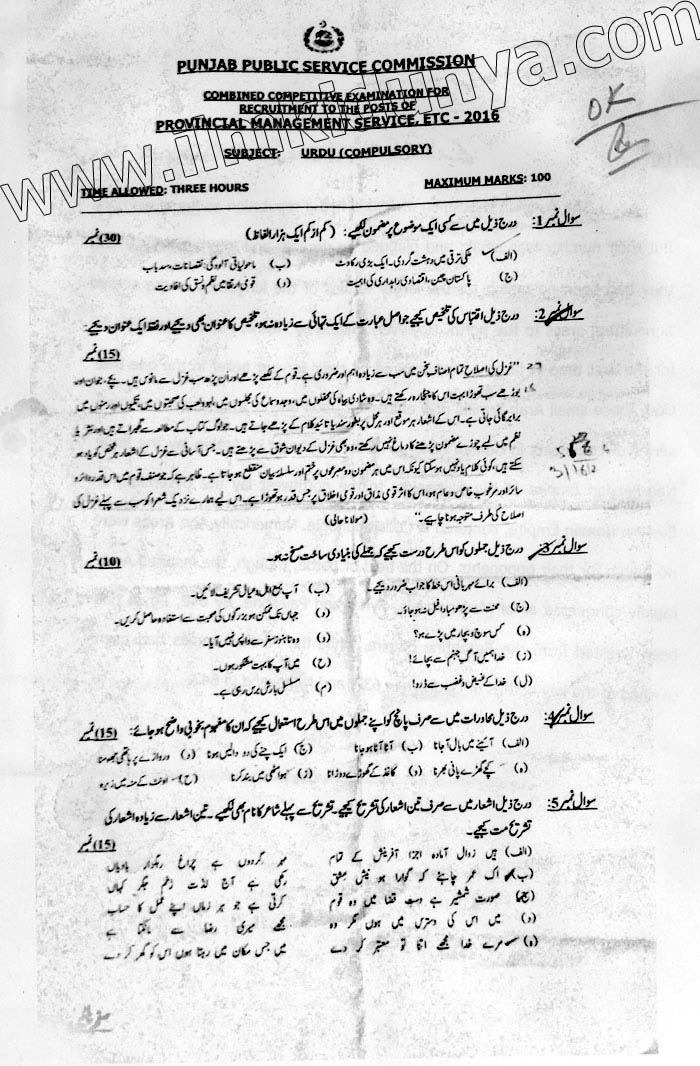 www.ilmkidunya.com
PUNJAB PUBLIC SERVICE COMMISSION
COMBINED COMPETITIVE EXAMINATION FOR
RECRUITMENT TO THE POSTS OF
PROVINCIAL MANAGEMENT SERVICE, ETC - 2016
OK
SUBJECT: URDU (COMPULSORY)
TIME ALLOWED: THREE HOURS MAXIMUM MARKS: 100
سوال نمبر 1: درج ذیل میں سے کسی ایک موضوع پر مضمون لکھیے: (کم از کم ایک ہزار الفاظ) (30) نمبر
(الف) ملکی ترقی میں دہشت گردی۔ ایک بڑی رکاوٹ (ب) ماحولیاتی آلودگی: نقصانات، سدباب
(ج) پاکستان چین، اقتصادی راہداری کی اہمیت (د) قومی ارتقا میں نظم و نسق کی افادیت
سوال نمبر 2: درج ذیل اقتباس کی تلخیص کیجیے جو اصل عبارت کے ایک تہائی سے زیادہ نہ ہو، تلخیص کا عنوان بھی دیجیے اور فقط ایک عنوان دیجیے:
(15) نمبر
"غزل کی اصلاح تمام اصناف سخن میں سب سے زیادہ اہم اور ضروری ہے۔ قوم کے لکھے پڑھے اور ان پڑھ سب غزل سے مانوس ہیں۔ بچے، جوان اور
بوڑھے سب تھوڑا بہت اس کا چٹخارہ رکھتے ہیں۔ وہ شادی بیاہ کی محفلوں میں، وجد و سماع کی مجلسوں میں، لہو و لعب کی صحبتوں میں، تکیوں اور رمنوں میں
برابر گائی جاتی ہے۔ اس کے اشعار ہر موقع اور ہر محل پر بطور سند یا تائید کلام کے پڑھے جاتے ہیں۔ جو لوگ کتاب کے مطالعہ سے گھبراتے ہیں اور نثر یا
نظم میں لمبے چوڑے مضمون پڑھنے کا دماغ نہیں رکھتے، وہ بھی غزل کے دیوان شوق سے پڑھتے ہیں۔ جس آسانی سے غزل کے اشعار ہر شخص کو یاد ہو
سکتے ہیں، کوئی کلام یاد نہیں ہو سکتا کیونکہ اس میں ہر مضمون دو مصرعوں پر ختم اور سلسلۂ بیان منقطع ہو جاتا ہے۔ ظاہر ہے کہ جو صنف قوم میں اس قدر دائر و
سائر اور مرغوب خاص و عام ہو، اس کا اثر قومی مذاق اور قومی اخلاق پر جس قدر ہو تھوڑا ہے۔ اس لیے ہمارے نزدیک شعرا کو سب سے پہلے غزل کی
اصلاح کی طرف متوجہ ہونا چاہیے۔" (مولانا حالی)
سوال نمبر 3: درج ذیل جملوں کو اس طرح درست کیجیے کہ جملے کی بنیادی ساخت مسخ نہ ہو۔ (10) نمبر
(الف) برائے مہربانی اس خط کا جواب ضرور دیجیے۔ (ب) آپ بمع اہل و عیال تشریف لائیں۔
(ج) محنت سے پڑھو مبادا فیل نہ ہو جاؤ۔ (د) جہاں تک ممکن ہو بزرگوں کی صحبت سے استفادہ حاصل کریں۔
(ہ) کس سوچ و بچار میں پڑے ہو؟ (و) وہ تا ہنوز سفر سے واپس نہیں آیا۔
(ز) خدا ہمیں آگِ جہنم سے بچائے! (ح) میں آپ کا بہت مشکور ہوں۔
(ل) خدا کے غیض و غضب سے ڈرو! (م) مسلسل بارش برس رہی ہے۔
سوال نمبر 4: درج ذیل محاورات میں سے صرف پانچ کو اپنے جملوں میں اس طرح استعمال کیجیے کہ ان کا مفہوم بخوبی واضح ہو جائے: (15) نمبر
(الف) آئینے میں بال آجانا (ب) آنا آنا ہو جانا (ج) ایک چنے کی دو دالیں ہونا (د) دروازے پر ہاتھی جھومنا
(ہ) کچے گھڑے پانی بھرنا (و) کاغذ کے گھوڑے دوڑانا (ز) ہوا مٹھی میں بند کرنا (ح) اونٹ کے منہ میں زیرہ
سوال نمبر 5: درج ذیل اشعار میں سے صرف تین اشعار کی تشریح کیجیے۔ تشریح سے پہلے شاعر کا نام بھی لکھیے۔ تین اشعار سے زیادہ اشعار کی
تشریح مت کیجیے۔ (15) نمبر
(الف) ہیں زوال آمادہ اجزا آفرینش کے تمام مہر گردوں ہے چراغ رہگزار باد یاں
(ب) اک عمر چاہئے کہ گوارا ہو نیش عشق رکھی ہے آج لذت زخم جگر کہاں
(ج) صورت شمشیر ہے دست قضا میں وہ قوم کرتی ہے جو ہر زماں اپنے عمل کا حساب
(د) میں اس کی دسترس میں ہوں مگر وہ مجھے میری رضا سے مانگتا ہے
(ہ) مرے خدا مجھے اتنا تو معتبر کر دے میں جس مکان میں رہتا ہوں اس کو گھر کر دے